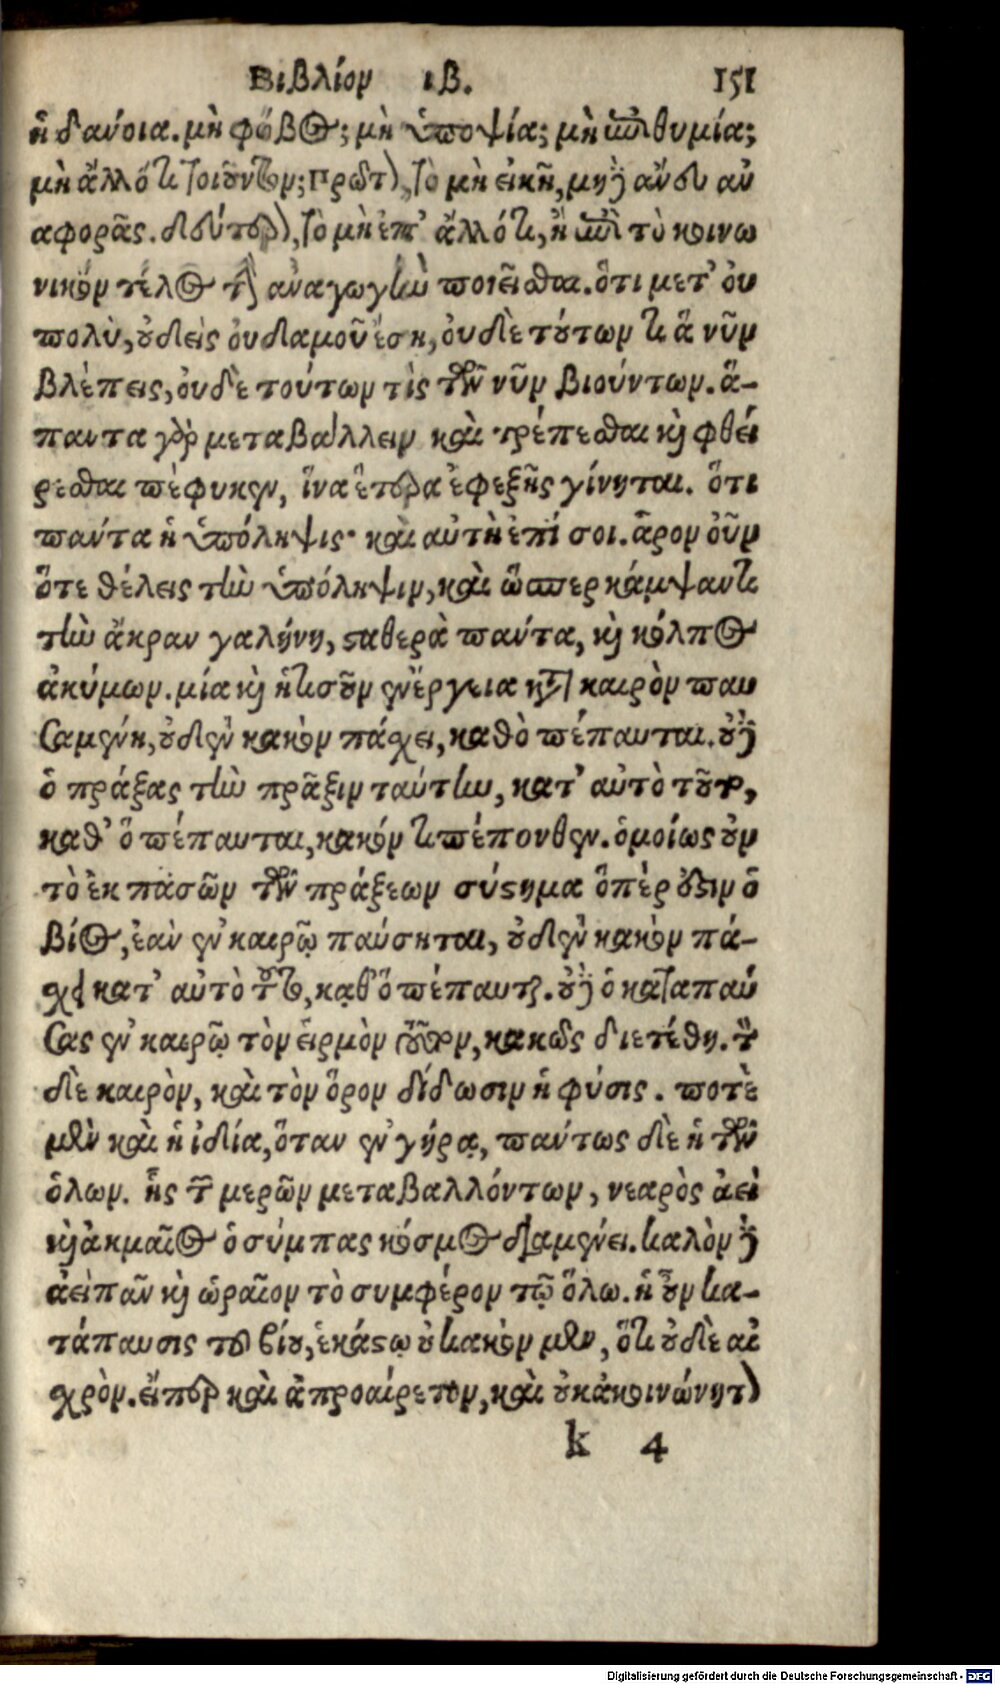 Βιβλίον ιβ. 151
ἡ διάνοια. μὴ φόβος; μὴ ὑποψία; μὴ ἐπιθυμία;
μὴ ἄλλό τι τοιοῦντον; πρῶτον, τὸ μὴ εἰκῆ, μηδὲ ἄνευ ἀν
αφορᾶς. δεύτερον, τὸ μὴ ἐπ' ἄλλό τι, ἢ ἐπὶ τὸ κοινω
νικὸν τέλος τὴν ἀναγωγὴν ποιεῖσθαι. ὅτι μετ' οὐ
πολὺ, οὐδεὶς οὐδαμοῦ ἔσῃ, οὐδὲ τούτων τι ἃ νῦν
βλέπεις, οὐδὲ τούτων τὶς τῶν νῦν βιούντων. ἅ-
παντα γὰρ μεταβάλλειν καὶ τρέπεσθαι καὶ φθεί
ρεσθαι πέφυκεν, ἵνα ἕτερα ἐφεξῆς γίνηται. ὅτι
πάντα ἡ ὑπόληψις· καὶ αὐτὴ ἐπί σοι. ἆρον οὖν
ὅτε θέλεις τὴν ὑπόληψιν, καὶ ὥσπερ κάμψαντι
τὴν ἄκραν γαλήνη, σταθερὰ πάντα, καὶ κόλπος
ἀκύμων. μία καὶ ἥτις οὖν ἐνέργεια κατὰ καιρὸν παυ
σαμένη, οὐδὲν κακὸν πάχει, καθὸ πέπαυται. οὐδὲ
ὁ πράξας τὴν πρᾶξιν ταύτην, κατ' αὐτὸ τοῦτο,
καθ' ὃ πέπαυται, κακόν τι πέπονθεν. ὁμοίως οὖν
τὸ ἐκ πασῶν τῶν πράξεων σύστημα ὅπέρ ἐστιν ὁ
βίος, ἐὰν ἐν καιρῷ παύσηται, οὐδὲν κακὸν πά-
χει κατ' αὐτὸ τοῦτο, καθ' ὃ πέπαυται. οὐδὲ ὁ καταπαύ
σας ἐν καιρῷ τὸν εἱρμὸν τοῦτον, κακῶς διετέθη. τὸν
δὲ καιρὸν, καὶ τὸν ὅρον δίδωσιν ἡ φύσις. ποτὲ
μὲν καὶ ἡ ἰδία, ὅταν ἐν γήρᾳ, πάντως δὲ ἡ τῶν
ὅλων. ἧς τῶν μερῶν μεταβαλλόντων, νεαρὸς ἀεὶ
καὶ ἀκμαῖος ὁ σύμπας κόσμος διαμένει. καλὸν δὲ
ἀεὶ πᾶν καὶ ὡραῖον τὸ συμφέρον τῷ ὅλῳ. ἡ οὖν κα-
τάπαυσις τοῦ βίου, ἑκάστῳ οὐ κακὸν μὲν, ὅτι οὐδὲ αἰ
χρὸν. εἴπερ καὶ ἀπροαίρετον, καὶ οὐκ ἀκοινώνητον
k 4
Digitalisierung gefördert durch die Deutsche Forschungsgemeinschaft - DFG